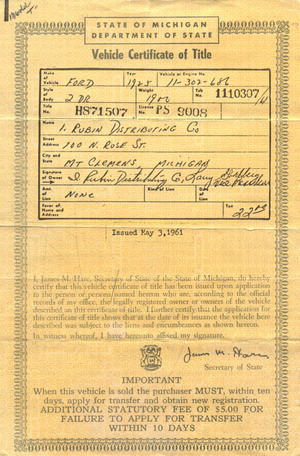 STATE OF MICHIGAN
DEPARTMENT OF STATE
Vehicle Certificate of Title
Make of Vehicle FORD Year 1925 Vehicle or Engine No. 11-303-686
Style of Body 2 DR Weight Tab No. 1110307/61
Title No. H871507 License No. PS 9008
Name I. RUBIN DISTRIBUTING CO
Street Address 100 N. ROSE ST.
City and State MT CLEMENS, MICHIGAN
Signature of Owner I. Rubin Distributing Co,
Am't of Lien NONE Kind of Lien Date of Lien
Favor of: Name and Address Tax
Issued May 3, 1961
I, James M. Hare, Secretary of State of the State of Michigan, do hereby
certify that this vehicle certificate of title has been issued upon application
to the person or persons/named hereon who are, according to the official
records of my office, the legally registered owner or owners of the vehicle
described on this certificate of title. I further certify that the application for
this certificate of title shows that at the date of its issuance the vehicle here
described was subject to the liens and encumbrances as shown hereon.
In witness whereof, I have hereunto affixed my signature.
James M. Hare
Secretary of State
IMPORTANT
When this vehicle is sold the purchaser MUST, within ten
days, apply for transfer and obtain new registration.
ADDITIONAL STATUTORY FEE OF $5.00 FOR
FAILURE TO APPLY FOR TRANSFER
WITHIN 10 DAYS